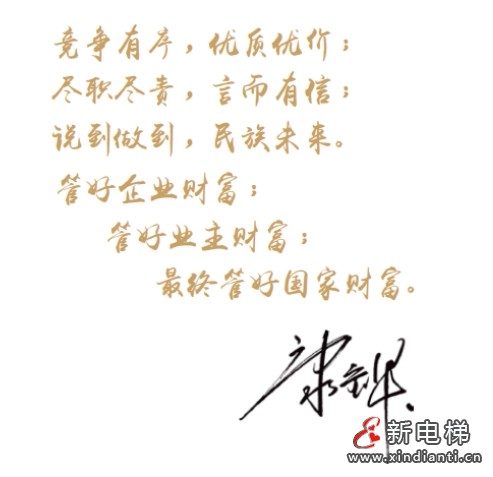 竞争有序，优质优价；
尽职尽责，言而有信；
说到做到，民族未来。
管好企业财富；
管好业主财富；
最终管好国家财富。
新电梯
www.xindianti.cn